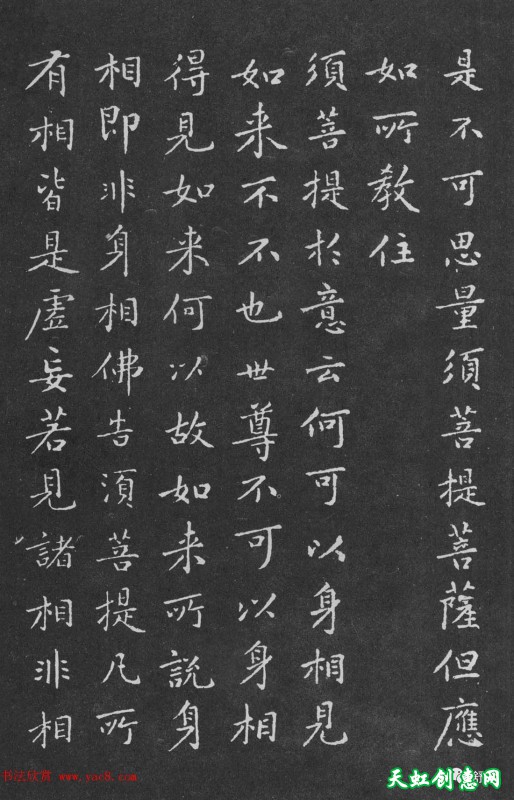 是不可思量須菩提菩薩但應
如所教住
須菩提於意云何可以身相見
如来不不也世尊不可以身相
得見如来何以故如来所說身
相即非身相佛告須菩提凡所
有相皆是虛妄若見諸相非相
书法欣赏 www.yac8.com
天虹创意网